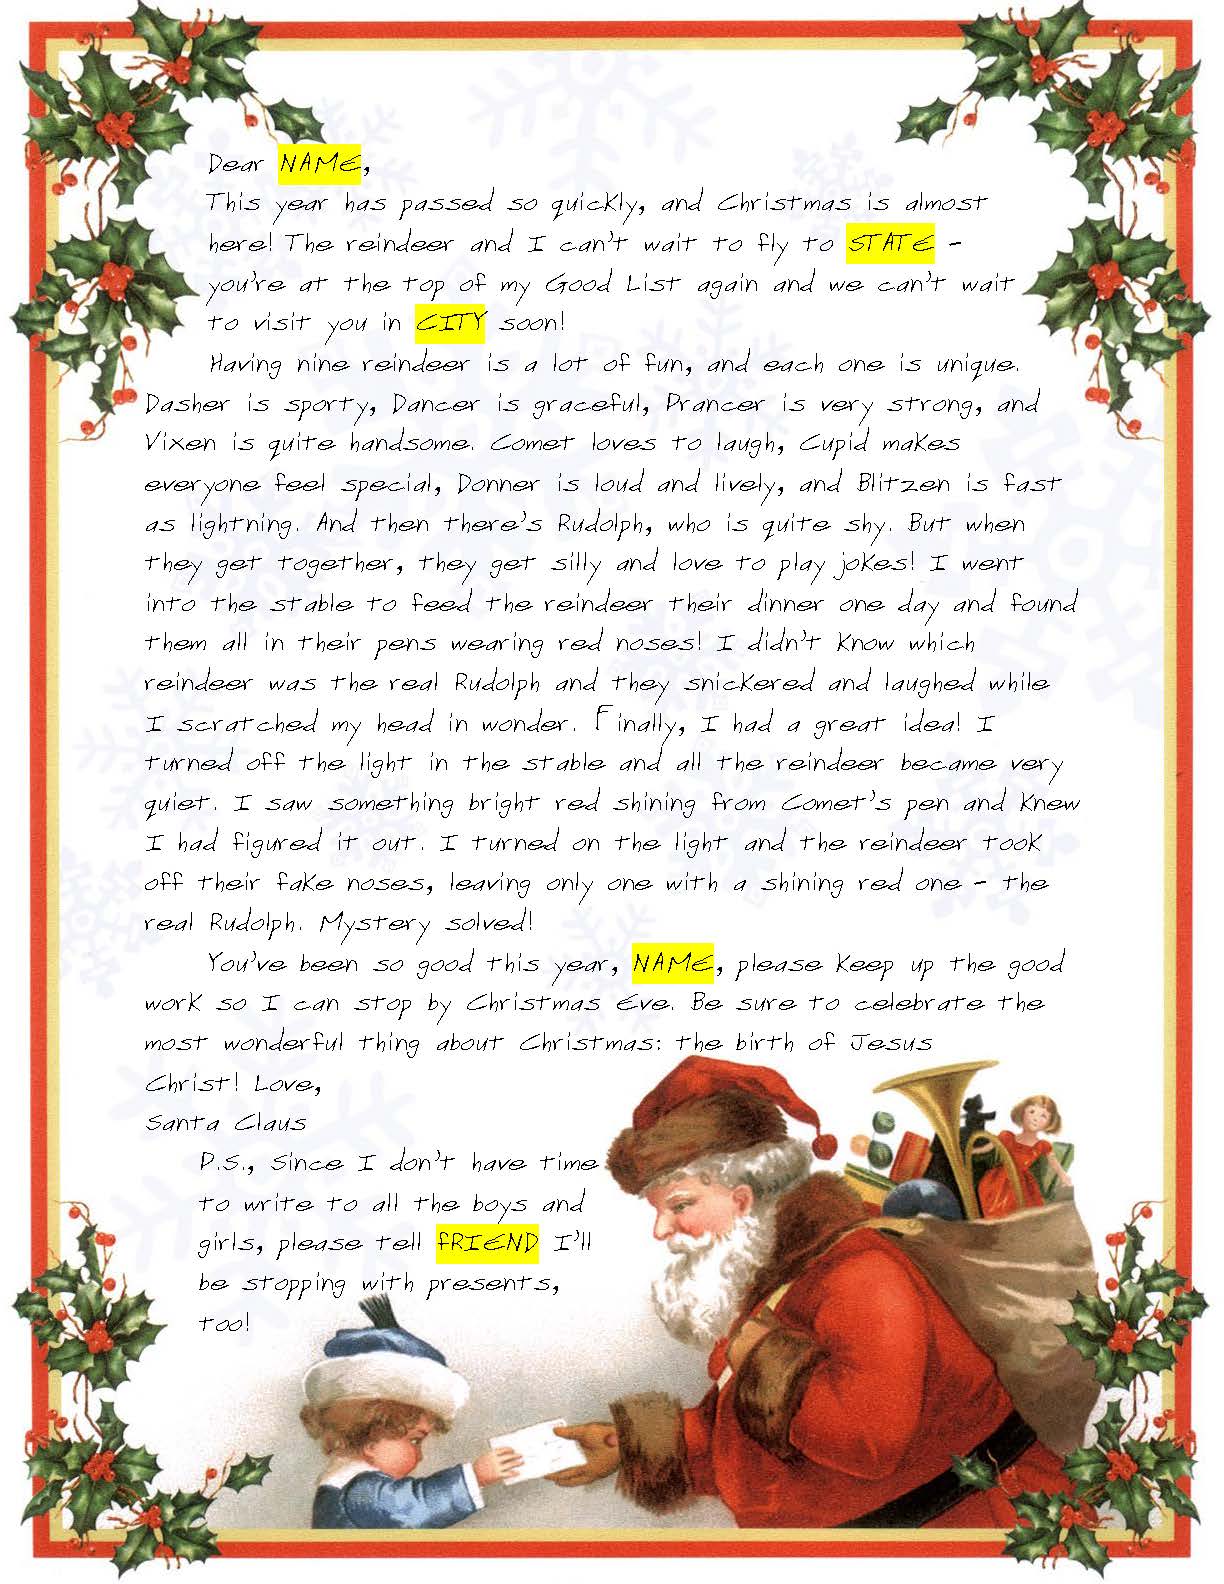 Dear NAME,
This year has passed so quickly, and Christmas is almost
here! The reindeer and I can't wait to fly to STATE -
you're at the top of my Good List again and we can't wait
to visit you in CITY soon!
Having nine reindeer is a lot of fun, and each one is unique.
Dasher is sporty, Dancer is graceful, Prancer is very strong, and
Vixen is quite handsome. Comet loves to laugh, Cupid makes
everyone feel special, Donner is loud and lively, and Blitzen is fast
as lightning. And then there's Rudolph, who is quite shy. But when
they get together, they get silly and love to play jokes! I went
into the stable to feed the reindeer their dinner one day and found
them all in their pens wearing red noses! I didn't know which
reindeer was the real Rudolph and they snickered and laughed while
I scratched my head in wonder. Finally, I had a great idea! I
turned off the light in the stable and all the reindeer became very
quiet. I saw something bright red shining from Comet's pen and knew
I had figured it out. I turned on the light and the reindeer took
off their fake noses, leaving only one with a shining red one - the
real Rudolph. Mystery solved!
You've been so good this year, NAME, please keep up the good
work so I can stop by Christmas Eve. Be sure to celebrate the
most wonderful thing about Christmas: the birth of Jesus
Christ! Love,
Santa Claus
P.S., Since I don't have time
to write to all the boys and
girls, please tell fRIEND I'll
be stopping with presents,
too!